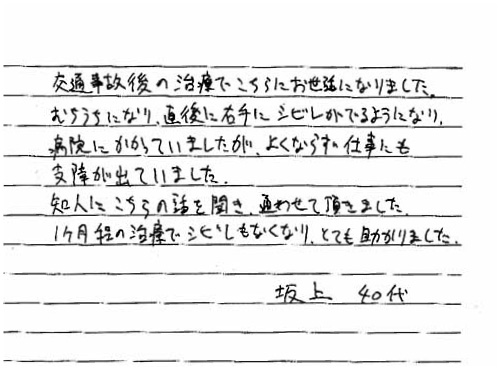 交通事故後の治療でこちらにお世話になりました。
むちうちになり、直後に右手にシビレがでるようになり、
病院にかかっていましたが、よくならず、仕事にも
支障が出ていました。
知人にこちらの話を聞き、通わせて頂きました。
1ヶ月程の治療でシビレもなくなり、とても助かりました。
坂上 40代